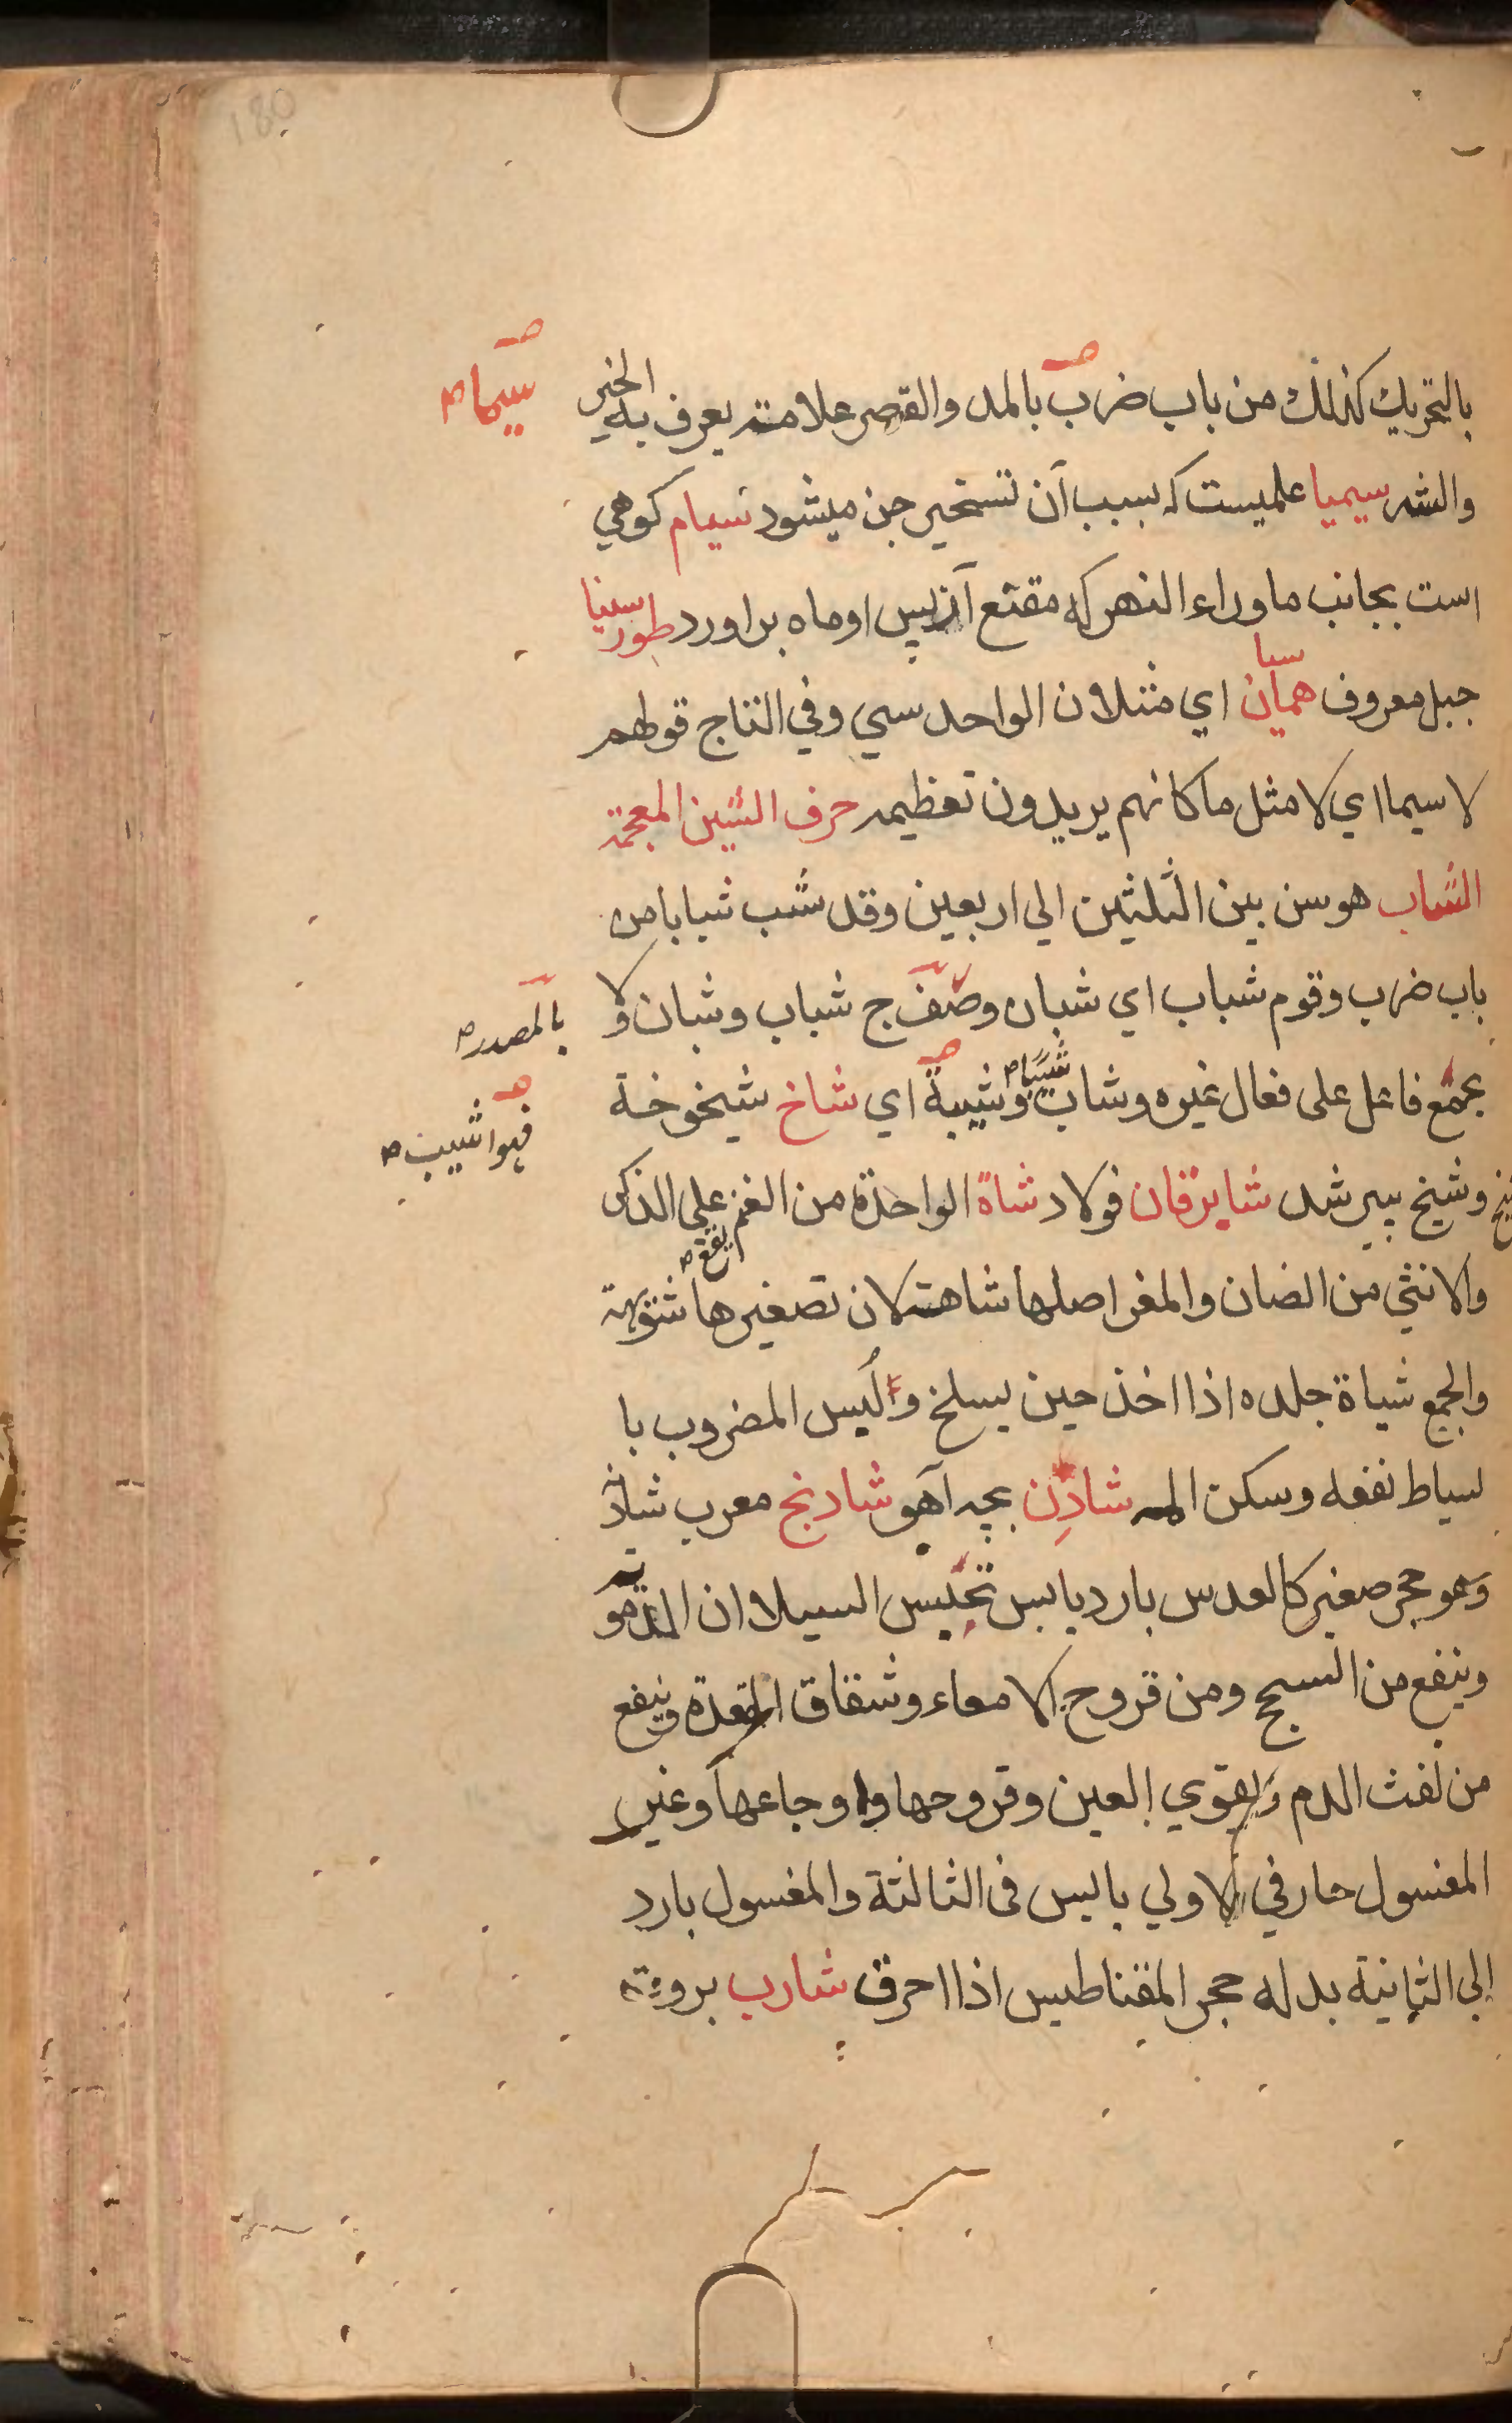 180
بالتحريك كذلك من باب ضرب بالمد والقصر علامته يعرف به الخير
سيماء
والشر سيميا علميست كه بسبب آن تسخير جن ميشود سيام كوهي
است بجانب ماوراء النهر كه مقنع ازپس او ماه براورد طور سينا
جبل معروف سيا همان اي مثلان الواحد سي وفي التاج قولهم
لا سيما اي لا مثل ما كانهم يريدون تعظيمه حرف الشين المعجمة
الشاب هو سن بين الثلثين الي اربعين وقد شب شبابا من
باب ضرب وقوم شباب اي شبان وصف ج شباب وشبان ولا
بالمصدر
يجمع فاعل على فعال غيره وشاب شيبا وشيبة اي شاخ شيخوخة
فهو اشيب
وشيخ پير شد شابرقان فولاد شاة الواحدة من الغنم يقع على الذكر
والانثي من الضان والمغر اصلها شاهة لان تصغيرها شويهة
والجمع شياة جلده اذا اخذ حين يسلخ والبس المضروب با
لسياط نفعه وسكن المه شادن بچه آهو شادنج معرب شادنه
وهو حجر صغير كالعدس بارد يابس تحبس السيلان الدموية
وينفع من السحج ومن قروح الامعاء وشقاق المقعدة وينفع
من نفث الدم ويقوي العين وقروحها واوجاعها وغير
المغسول حار في الاولي يابس فى الثالثة والمغسول بارد
الى الثانية بدله حجر المقناطيس اذا احرق شارب بروت